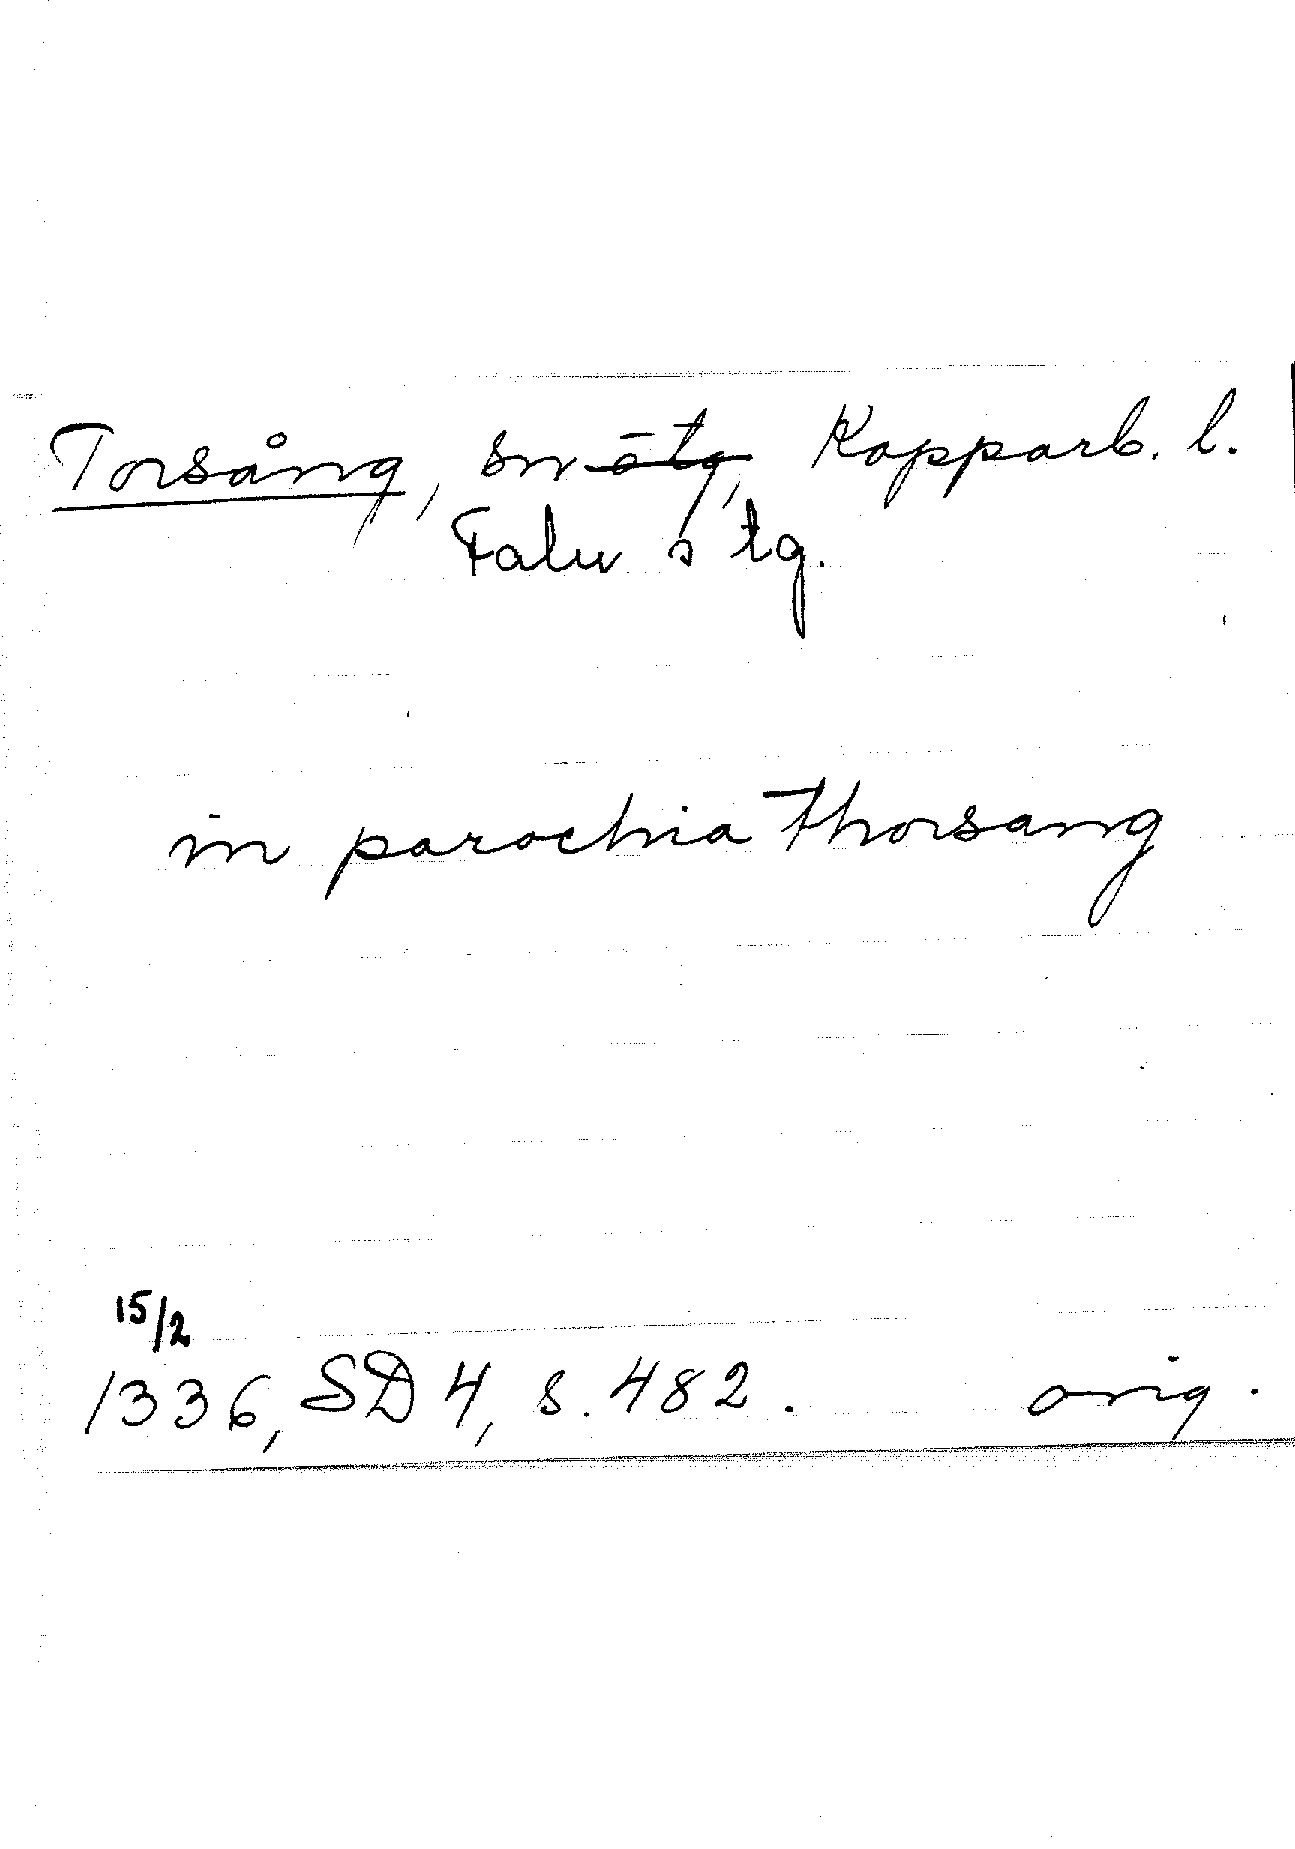 Torsång, sn ō tg, Kopparb. l.
Falu s tg.
in parochia Thorsang
15/2
1336, SD 4, s. 482. orig.